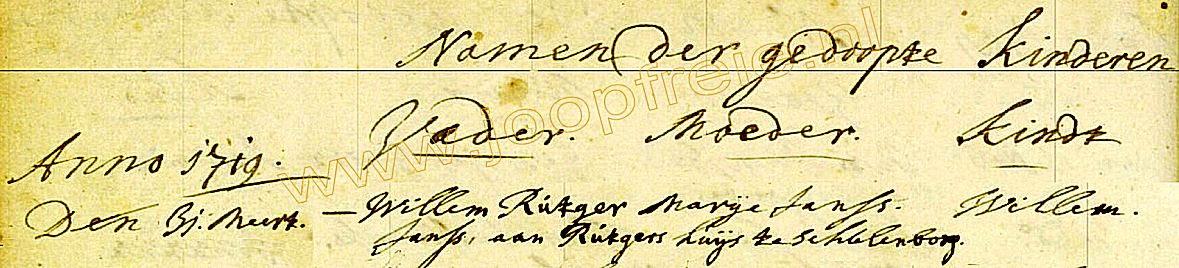 Namen der gedoopte Kinderen
Vader. Moeder. Kindt
Anno 1719.
Den 3j. Meert. — Willem Rútger Marye Janss. Willem.
Janss, aan Rútgers huijs te Schelenborg.
www.joopfreie.nl